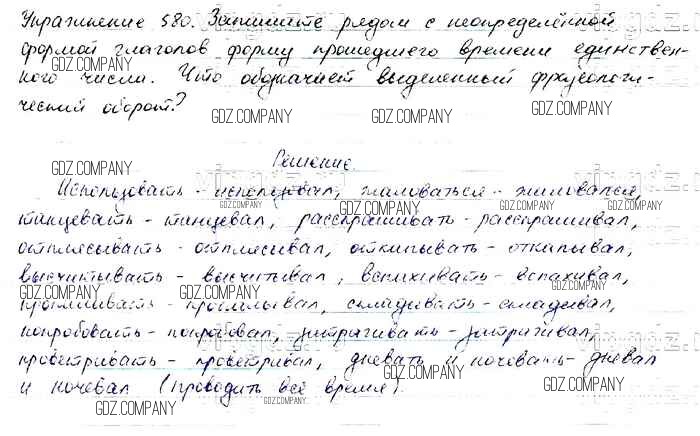 Упражнение 580. Запишите рядом с неопределённой
формой глаголов форму прошедшего времени единствен-
ного числа. Что обозначает выделенный фразеологи-
ческий оборот?
Решение.
Использовать - использовал, жаловаться - жаловался,
танцевать - танцевал, расспрашивать - расспрашивал,
отплясывать - отплясывал, откапывать - откапывал,
высчитывать - высчитывал, вспахивать - вспахивал,
пропалывать - пропалывал, складывать - складывал,
попробовать - попробовал, затрагивать - затрагивал,
проветривать - проветривал, дневать и ночевать - дневал
и ночевал (проводить всё время).
GDZ.COMPANY